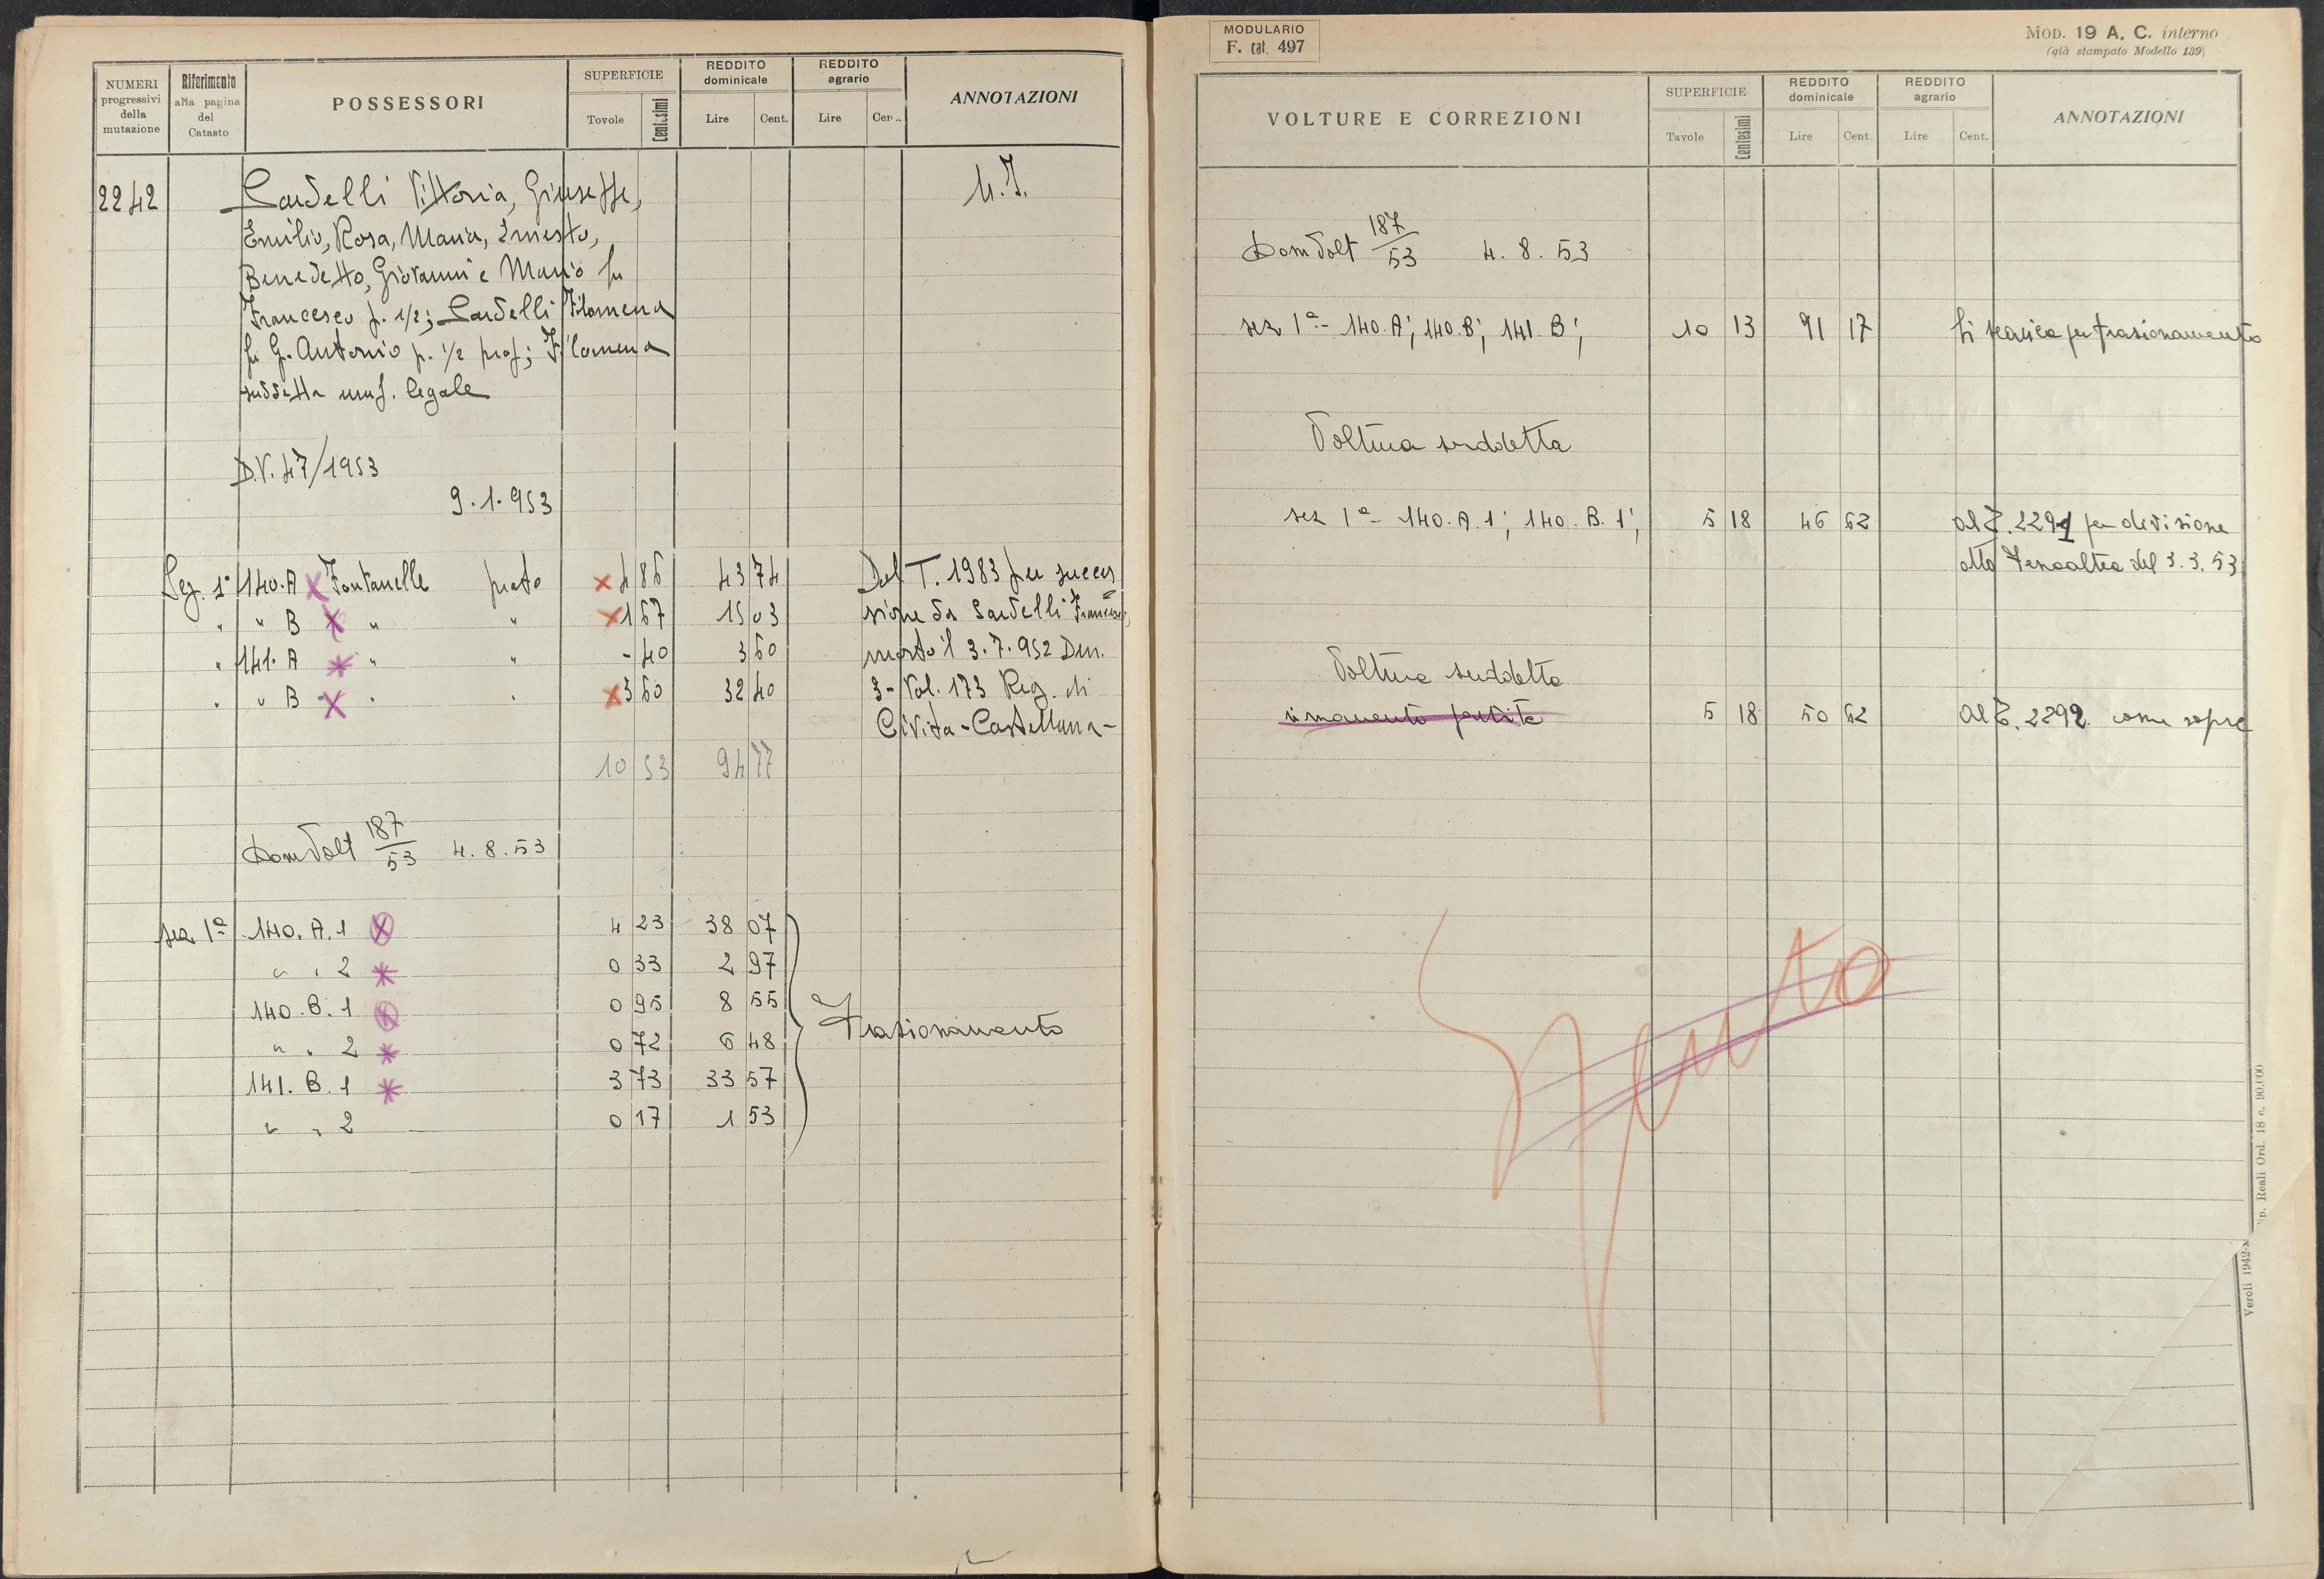 NUMERI progressivi della mutazione
Riferimento alla pagina del Catasto
POSSESSORI
SUPERFICIE
Tovole Centesimi
REDDITO dominicale
Lire Cent.
REDDITO agrario
Lire Cen..
ANNOTAZIONI
2242 Sardelli Vittoria, Giuseppe, U.I.
Emilio, Rosa, Maria, Ernesto,
Benedetto, Giovanni e Mario fu
Francesco p. 1/2; Sardelli Filomena
fu G. Antonio p. 1/2 prof; Filomena
suddetta usuf. legale
D.V. 47/1953
9.1.953
Sez. 1ª 140.A X Fontanelle prato X 4 86 43 74 Dal T. 1983 per succes
" " B X " " X 1 67 15 03 sione da Sardelli Francesco,
" 141. A " " - 40 3 60 morto il 3.7.952 Den.
" " B X " " X 3 60 32 40 3 - Vol. 173 Reg. di
Civita-Castellana-
10 53 94 77
Dom Volt 187/53 4.8.53
sez 1ª 140. A. 1 4 23 38 07
" " 2 0 33 2 97
140. B. 1 0 95 8 55
" " 2 0 72 6 48
Frazionamento
141. B. 1 3 73 33 57
" " 2 0 17 1 53
MODULARIO
F. cat. 497
MOD. 19 A. C. interno
(già stampato Modello 139)
VOLTURE E CORREZIONI
SUPERFICIE
Tavole Centesimi
REDDITO dominicale
Lire Cent.
REDDITO agrario
Lire Cent.
ANNOTAZIONI
Dom Volt 187/53 4.8.53
sez 1ª - 140.A; 140.B; 141.B; 10 13 91 17 Si scarica per frazionamento
Voltura suddetta
sez 1ª - 140.A.1; 140.B.1; 5 18 46 62 Al T. 2291 per divisione
atto Tenaaltea del 3.3.53
Voltura suddetta
rimanente partita 5 18 50 62 Al T. 2292 come sopra
Spento
Veroli 1942-
p. Reali Ord. 18 c. 90.000